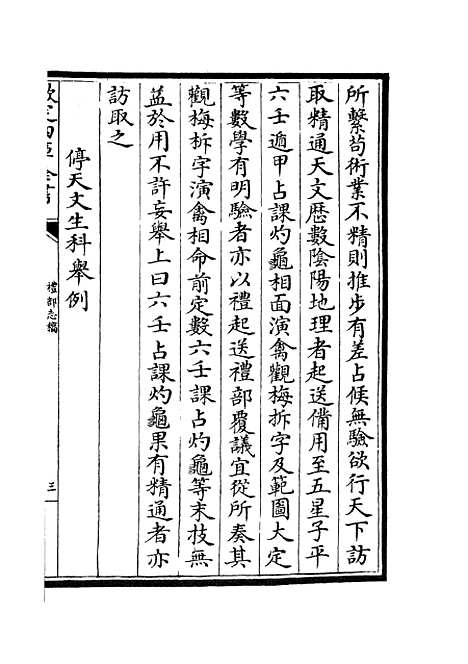 所繫苟術業不精則推步有差占候無驗欲行天下訪
取精通天文歷數隂陽地理者起送備用至五星子平
六壬遁甲占課灼龜相面演禽觀梅拆字及範圍大定
等數學有明驗者亦以禮起送禮部覆議宜從所奏其
觀梅柝字演禽相命前定數六壬課占灼龜等末枝無
益於用不許妄舉上曰六壬占課灼龜果有精通者亦
訪取之
停天文生科舉例
欽定四庫全書
禮部志稿
三